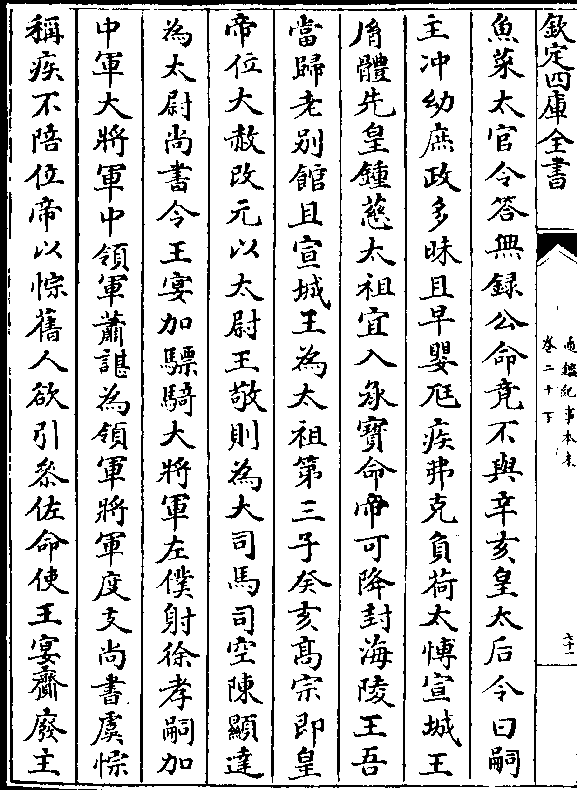 欽定四庫全書
通鑑紀事本末
卷二十下
七十一
魚菜太官令答無録公命竟不與辛亥皇太后令曰嗣
主冲幼庶政多昧且早嬰尫疾弗克負荷太愽宣城王
胤體先皇鍾慈太祖宜入承寳命帝可降封海陵王吾
當歸老别館且宣城王為太祖第三子癸亥髙宗即皇
帝位大赦改元以太尉王敬則為大司馬司空陳顯達
為太尉尚書令王宴加驃騎大將軍左僕射徐孝嗣加
中軍大將軍中領軍蕭諶為領軍將軍度支尚書虞悰
稱疾不陪位帝以悰舊人欲引參佐命使王宴齎廢主